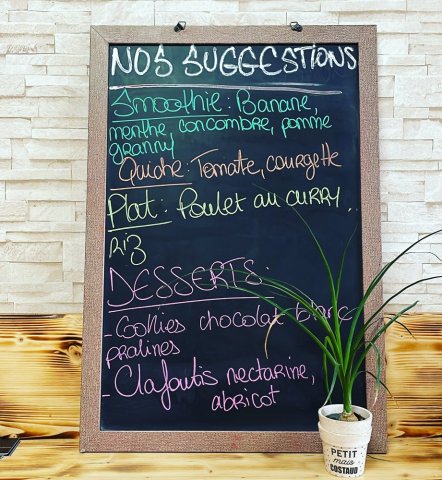 NOS SUGGESTIONS
Smoothie : Banane,
menthe, concombre, pomme
granny
Quiche : Tomate, courgette
Plat : Poulet au CURRY,
riz
DESSERTS.
- Cookies chocolat blanc
pralines
- Clafoutis nectarine,
abricot
PETIT
mais
COSTAUD